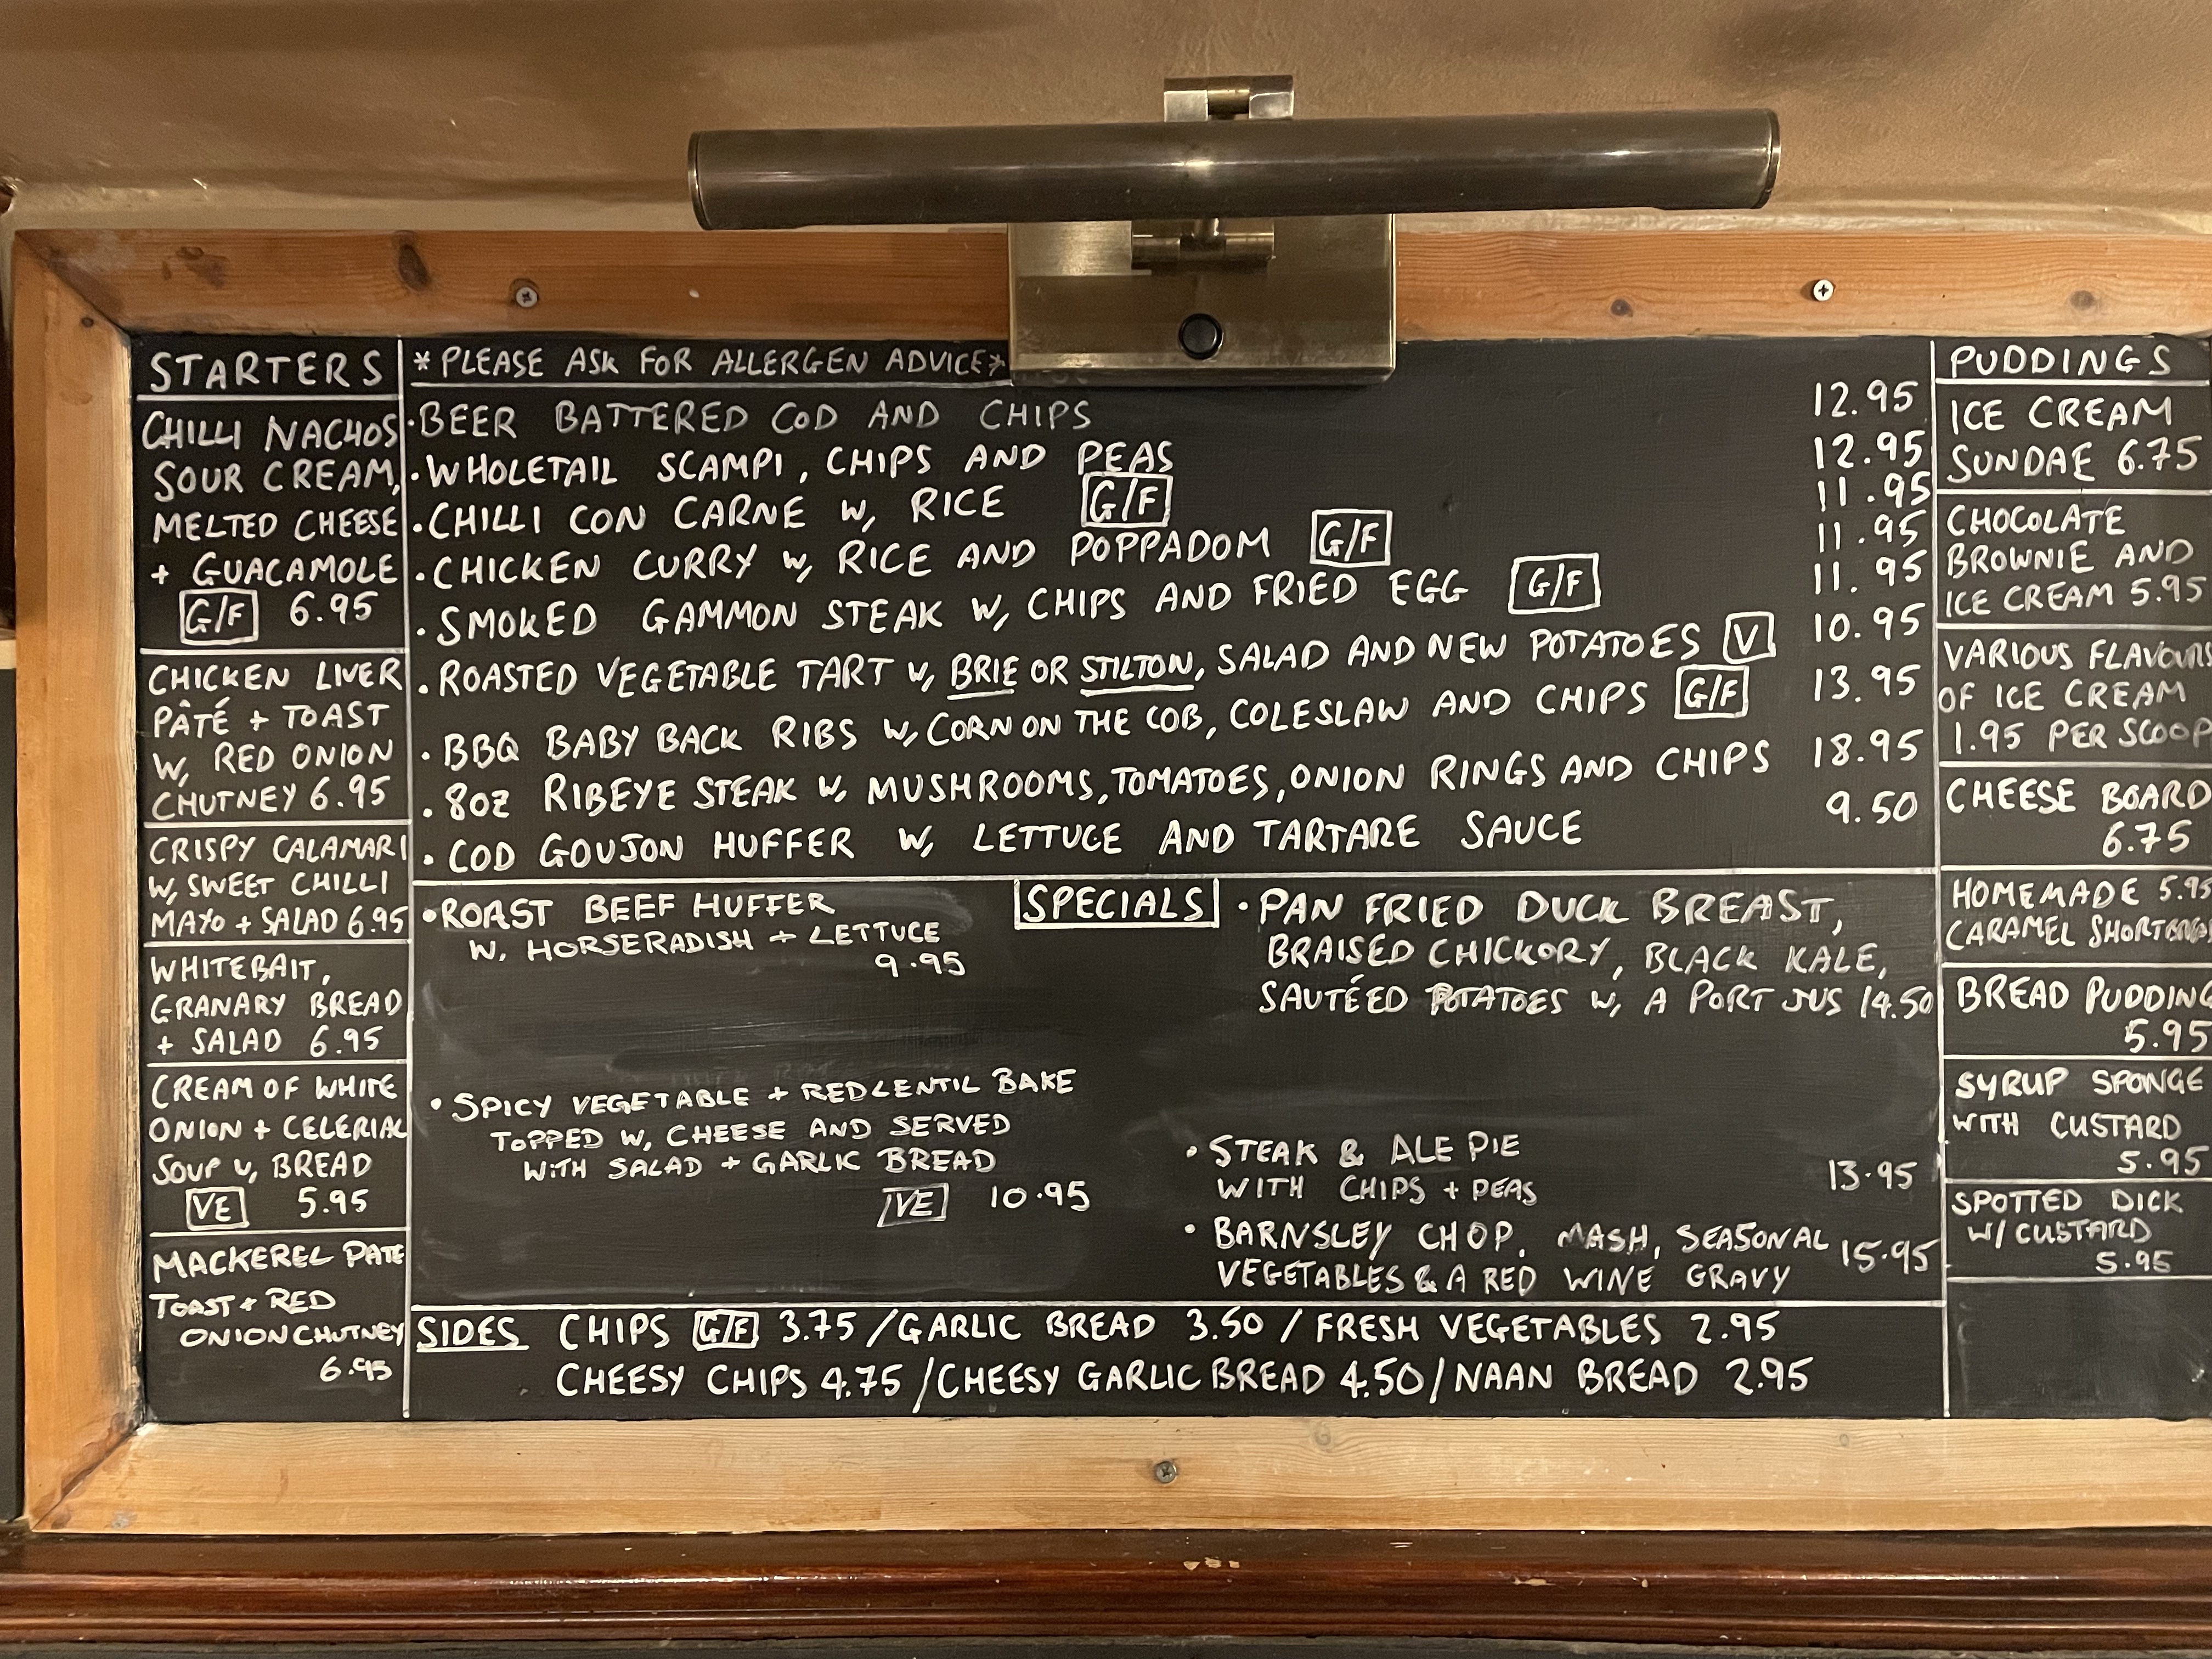 STARTERS
CHILLI NACHOS
SOUR CREAM,
MELTED CHEESE
+ GUACAMOLE
G/F 6.95
CHICKEN LIVER
PÂTÉ + TOAST
W, RED ONION
CHUTNEY 6.95
CRISPY CALAMARI
W, SWEET CHILLI
MAYO + SALAD 6.95
WHITEBAIT,
GRANARY BREAD
+ SALAD 6.95
CREAM OF WHITE
ONION + CELERIAC
SOUP W, BREAD
VE 5.95
MACKEREL PATE
TOAST + RED
ONION CHUTNEY
6.95
*PLEASE ASK FOR ALLERGEN ADVICE*
·BEER BATTERED COD AND CHIPS 12.95
·WHOLETAIL SCAMPI, CHIPS AND PEAS 12.95
·CHILLI CON CARNE W, RICE G/F 11.95
·CHICKEN CURRY W, RICE AND POPPADOM G/F 11.95
·SMOKED GAMMON STEAK W, CHIPS AND FRIED EGG G/F 11.95
·ROASTED VEGETABLE TART W, BRIE OR STILTON, SALAD AND NEW POTATOES V 10.95
·BBQ BABY BACK RIBS W, CORN ON THE COB, COLESLAW AND CHIPS G/F 13.95
·8OZ RIBEYE STEAK W, MUSHROOMS, TOMATOES, ONION RINGS AND CHIPS 18.95
·COD GOUJON HUFFER W, LETTUCE AND TARTARE SAUCE 9.50
SPECIALS
·ROAST BEEF HUFFER
W. HORSERADISH + LETTUCE
9.95
·SPICY VEGETABLE + RED LENTIL BAKE
TOPPED W, CHEESE AND SERVED
WITH SALAD + GARLIC BREAD
VE 10.95
·PAN FRIED DUCK BREAST,
BRAISED CHICKORY, BLACK KALE,
SAUTÉED POTATOES W, A PORT JUS 14.50
·STEAK & ALE PIE
WITH CHIPS + PEAS 13.95
·BARNSLEY CHOP, MASH, SEASONAL
VEGETABLES & A RED WINE GRAVY 15.95
SIDES CHIPS G/F 3.75 / GARLIC BREAD 3.50 / FRESH VEGETABLES 2.95
CHEESY CHIPS 4.75 / CHEESY GARLIC BREAD 4.50 / NAAN BREAD 2.95
PUDDINGS
ICE CREAM
SUNDAE 6.75
CHOCOLATE
BROWNIE AND
ICE CREAM 5.95
VARIOUS FLAVOURS
OF ICE CREAM
1.95 PER SCOOP
CHEESE BOARD
6.75
HOMEMADE 5.95
CARAMEL
BREAD PUDDING
5.95
SYRUP SPONGE
WITH CUSTARD
5.95
SPOTTED DICK
W/ CUSTARD
5.95